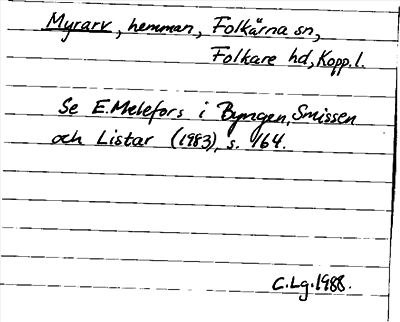 Myrarv, hemman, Folkärna sn,
Folkare hd, Kopp.l.
Se E. Melefors i Byngen, Smissen
och Listar (1983), s. 164.
C.Lg. 1988.